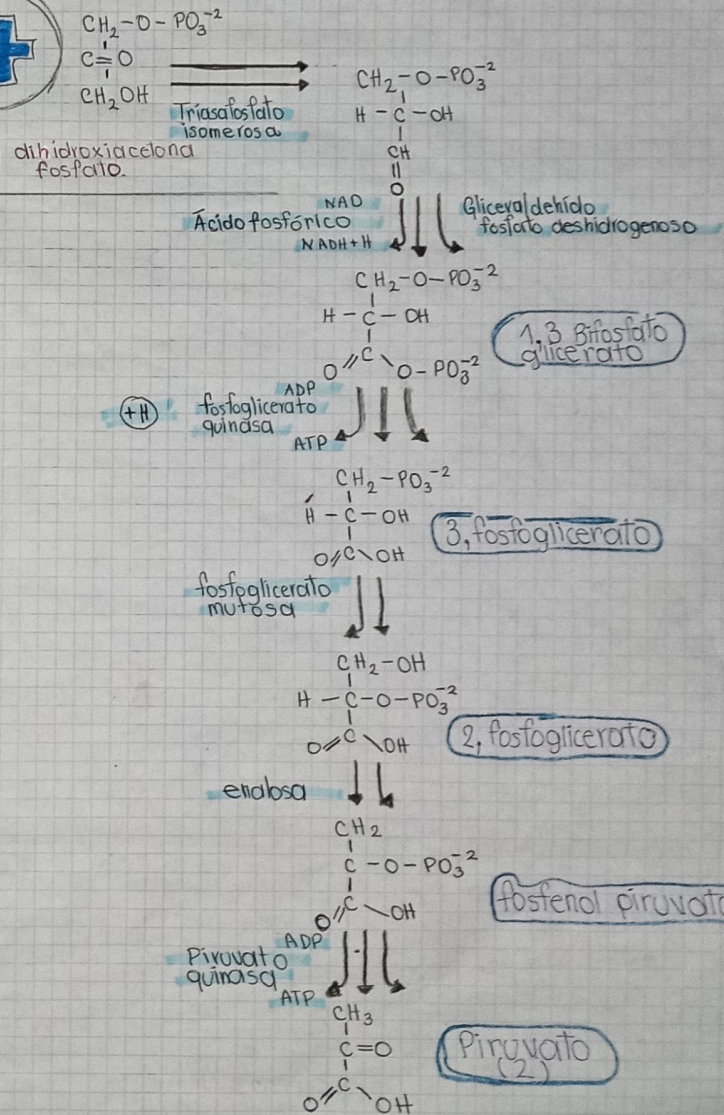 CH₂-O-PO₃⁻²
C=O
CH₂OH
Triasafosfato
isomerosa
dihidroxiacelona
fosfato.
CH₂-O-PO₃⁻²
H-C-OH
CH
O
NAD
Ácido fosfórico
NADH+H
Gliceraldehído
fosfato deshidrogenoso
CH₂-O-PO₃⁻²
H-C-OH
O=C O-PO₃⁻²
1,3 Bifosfato
glicerato
+H
ADP
fosfoglicerato
quinasa
ATP
CH₂-PO₃⁻²
H-C-OH
O=C OH
3,fosfoglicerato
fosfoglicerato
mutosa
CH₂-OH
H-C-O-PO₃⁻²
O=C OH
2,fosfoglicerato
enalosa
CH₂
C-O-PO₃⁻²
O=C-OH
fosfenol piruvato
ADP
Piruvato
quinasa
ATP
CH₃
C=O
O=C OH
Piruvato
(2)